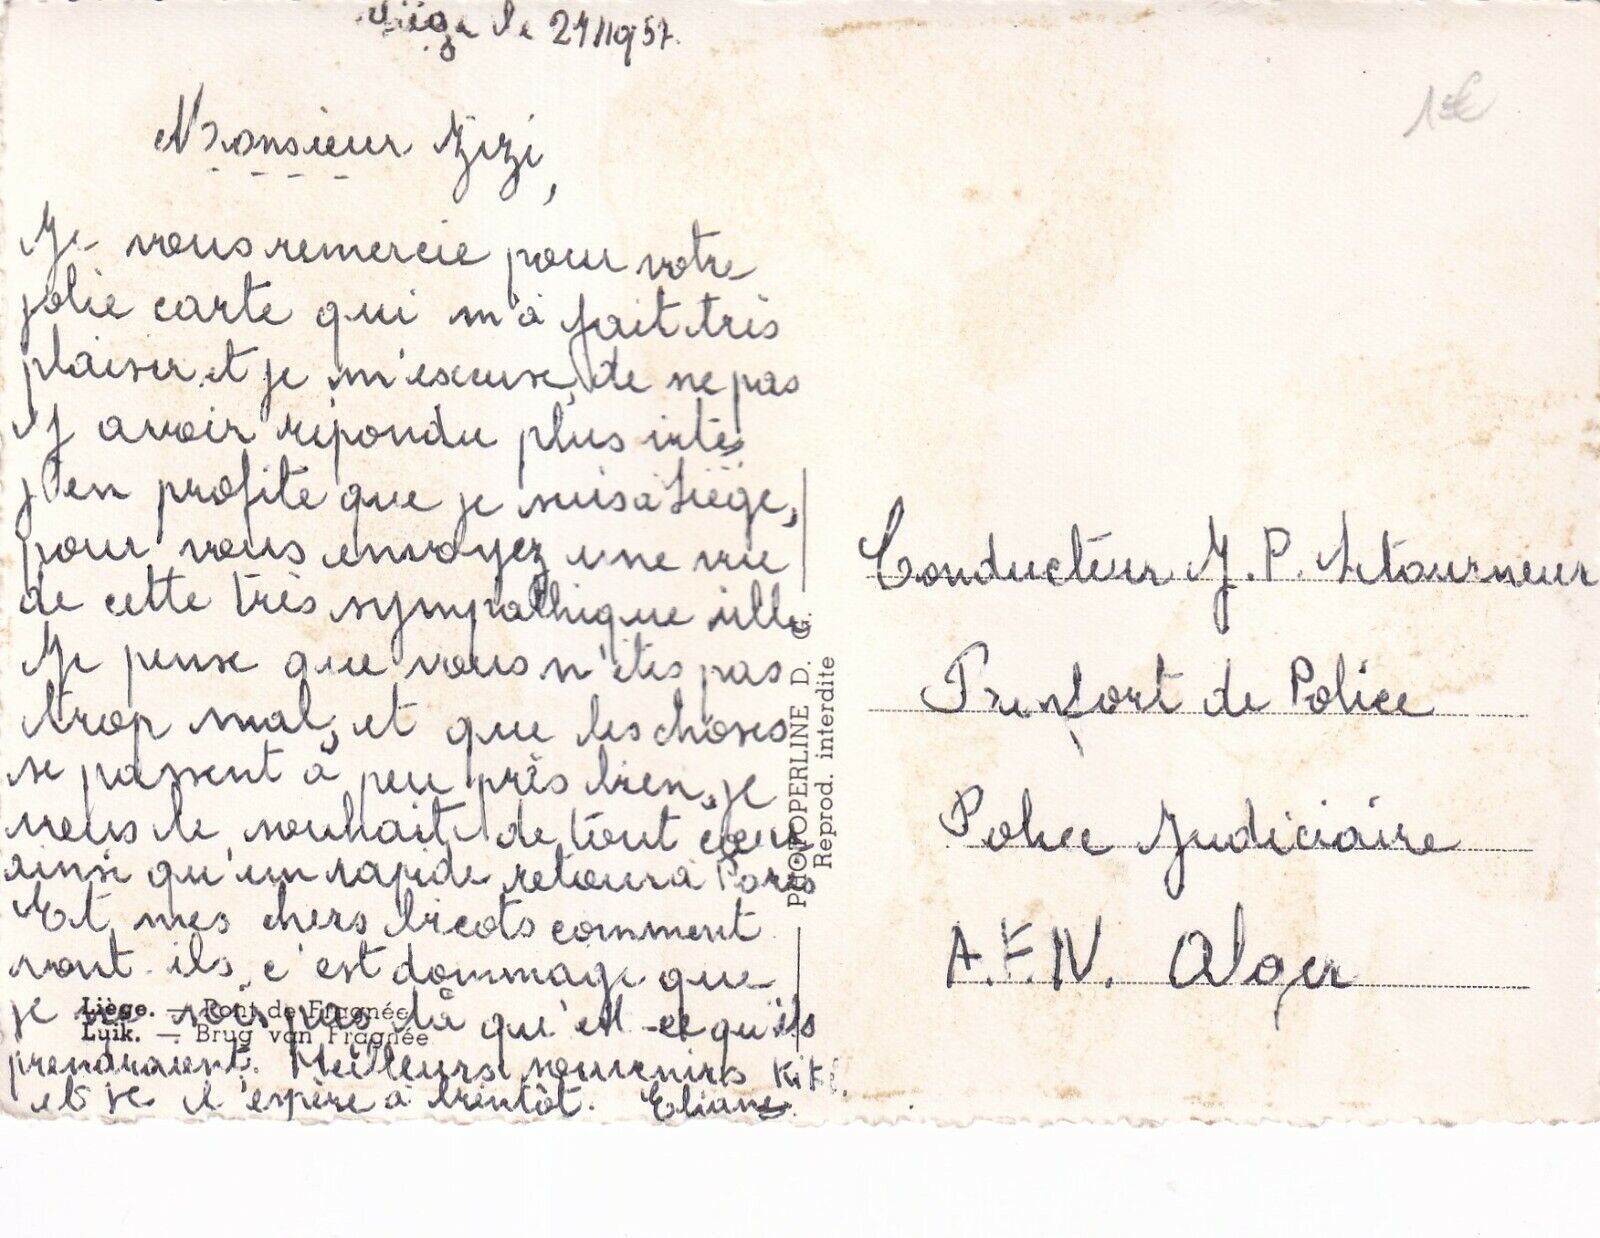 Liège le 27/10/57.
Monsieur Zizi,
Je vous remercie pour votre
jolie carte qui m'a fait très
plaisir et je m'excuse, de ne pas
y avoir répondu plus vite
j'en profite que je suis à Liège,
pour vous envoyez une vue
de cette très sympathique ville
Je pense que vous n'êtes pas
trop mal, et que les choses
se passent à peu près bien, je
vous le souhaite de tout cœur
ainsi qu'un rapide retour à Paris
Et mes chers bicots comment
vont ils, c'est dommage que
je ne sois pas là qu'est-ce qu'ils
prendraient. Meilleurs souvenirs Kiki.
et je l'espère à bientôt. Eliane
Liège. — Pont de Fragnée
Luik. — Brug van Fragnée
PHOTOPERLINE D.
Reprod. interdite
1€
Conducteur J. P. Letourneur
Renfort de Police
Police Judiciaire
A.F.N. Alger